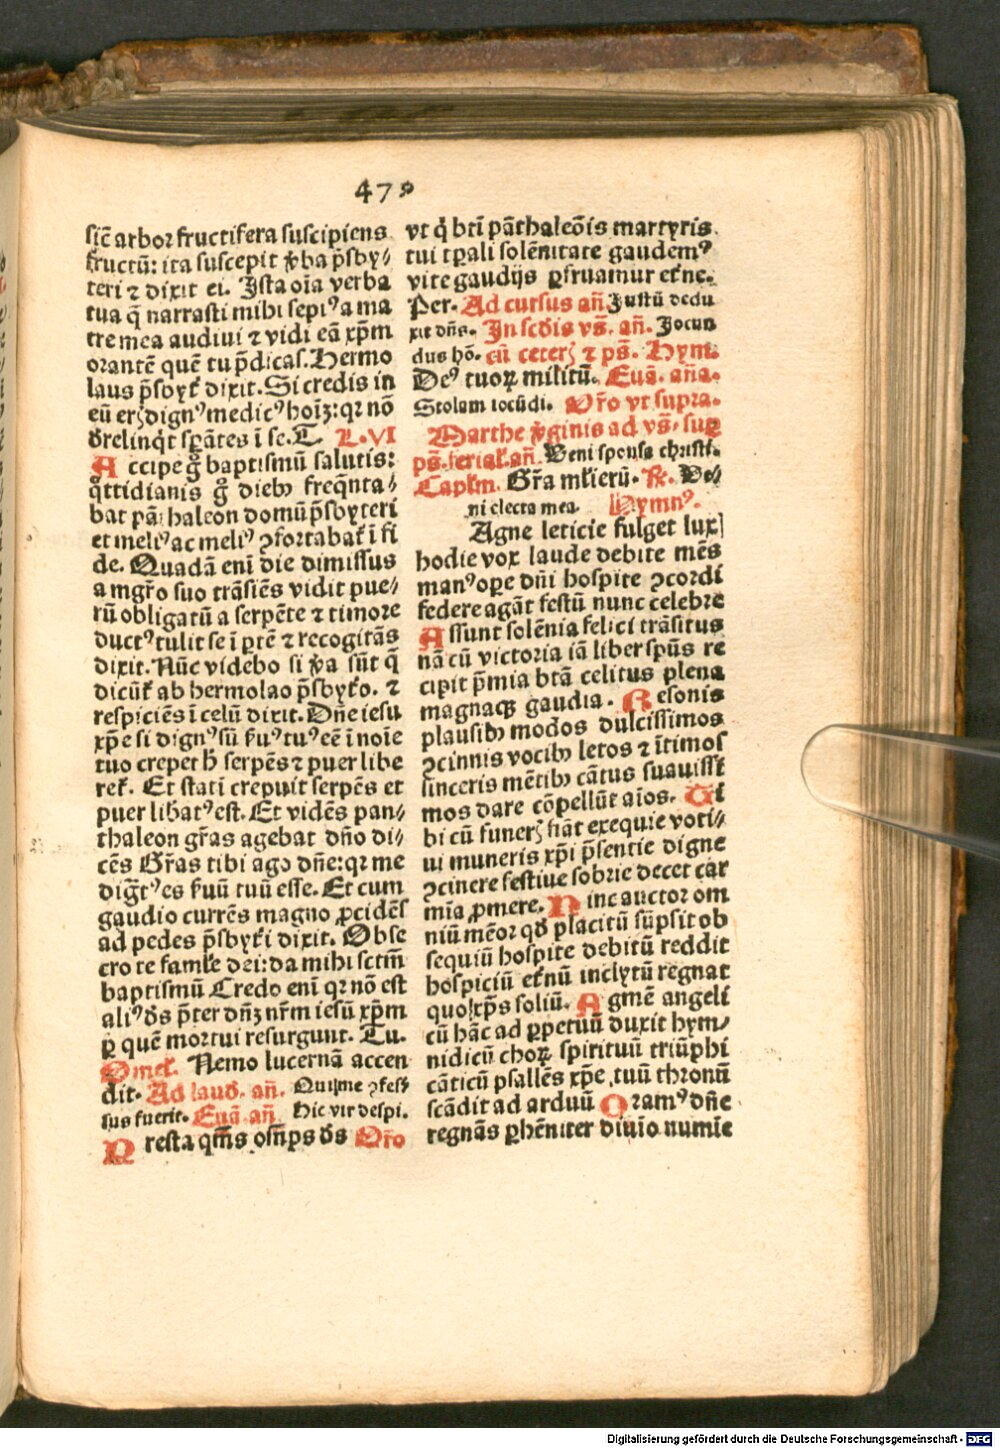 479
sic̄ arbor fructifera suscipiens
fructū: ita suscepit v̾ba p̄sby/
teri ⁊ dixit ei. Ista oīa verba
tua q̄ narrasti mihi sepiꝰ a ma
tre mea audiui ⁊ vidi eā xp̄m
orantē quē tu p̄dicas. Hermo
laus p̄sbyt̾ dixit. Si credis in
eū erꝫ dignꝰ medicꝰ hoīꝫ: qꝛ nō
d̾relinq̇t sꝑātes ī se. T. L. VI
Accipe g̊ baptismū salutis:
q̊ttidianis g̊ diebꝰ freq̄nta/
bat pāthaleon domū p̄sbyteri
et meliꝰ ac meliꝰ ꝯfortabat̾ ī fi
de. Quadā enī die dimissus
a mgr̄o suo trāsiēs vidit pue/
rū obligatū a serpēte ⁊ timore
ductꝰ tulit se ī ꝑtē ⁊ recogitās
dixit. Nūc videbo si v̾a sūt q̄
dicūt̾ ab hermolao p̄sbyt̾o. ⁊
respiciēs ī celū dixit. Dn̄e iesu
xp̄e si dignꝰ sū ẜuꝰ tuꝰ eē ī noīe
tuo crepet h̄ serpēs ⁊ puer libe
ret̾. Et statī crepuit serpēs et
puer lib̾atꝰ est. Et vidēs pan/
thaleon gr̄as agebat dn̄o di/
cēs Gr̄as tibi ago dn̄e: qꝛ me
diḡtꝰ es ẜuū tuū esse. Et cum
gaudio currēs magno ꝓcidēs
ad pedes p̄sbyt̾i dixit. Obse
cro te famĺe dei: da mihi sctm̄
baptismū Credo enī qꝛ nō est
aliꝰ d̾s p̄ter dn̄ꝫ nr̄m iesū xp̄m
ꝑ quē mortui resurgunt. Tu.
Omel̾. Nemo lucernā accen
dit. Ad laud̾. an̄. Qui me ꝯfess
sus fuerit. Euā an̄ Hic vir despi.
Presta qm̄s oīn̄ps d̾s Or̄o
vt q̇ bt̄i pāthaleōis martyris
tui tꝑali solēnitate gaudemꝰ
vite gaudijs ꝑfruamur et̾ne.
Per. Ad cursus an̄ Justū dedu
xit dn̄s. In sc̄dis vs̄. an̄. Jocun
dus hō. cū ceterꝫ ⁊ ps̄. Hym.
Deꝰ tuoꝝ militū. Euā. an̄a.
Stolam iocūdi. Or̄o vt supra.
Marthe v̾ginis ad vs̄. suꝑ
ps̄. ferial̾. an̄. Veni sponsa christi.
Capl̾m. Gr̄a mĺierū. ꝶ. De/
ni electa mea. Hymnꝰ.
Agne leticie fulget lux
hodie vox laude debite mēs
manꝰ ope dn̄i hospite ꝯcordi
federe agāt festū nunc celebre
Assunt solēnia felici trāsitus
nā cū victoria iā liber sp̄us re
cipit p̄mia btā celitus plena
magnaqꝫ gaudia. Resonis
plausibꝰ modos dulcissimos
ꝯcinnis vocibꝰ letos ⁊ ītimos
sinceris mētibꝰ cātus suauissi
mos dare cōpellūt aīos. Ti
bi cū funerꝫ fiāt exequie voti/
ui muneris xp̄i p̄sentie digne
ꝯcinere festiue sobrie decet car
mīa ꝓmere. Hinc auctor om
niū mēor qd̾ placitū sūpsit ob
sequiū hospite debitū reddit
hospiciū et̾nū inclytū regnat
quo xp̄s soliū. Agmē angeli
cū hāc ad ꝑpetuū duxit hym/
nidicū choꝝ spirituū triūphi
cāticū psallēs xp̄e tuū thronū
scādit ad arduū Oramꝰ dn̄e
regnās ꝑhēniter diuīo numīe
Digitalisierung gefördert durch die Deutsche Forschungsgemeinschaft - DFG